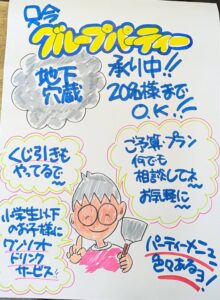 只今
グループパーティー
承り中!!
20名様まで
O.K!!
地下
穴蔵
くじ引きも
やってるで〜
ご予算・プラン
何でも
相談してネ
お気軽に〜
小学生以下
のお子様に
ワンソフト
ドリンク
サービス
パーティーメニュー
色々あるヨ!